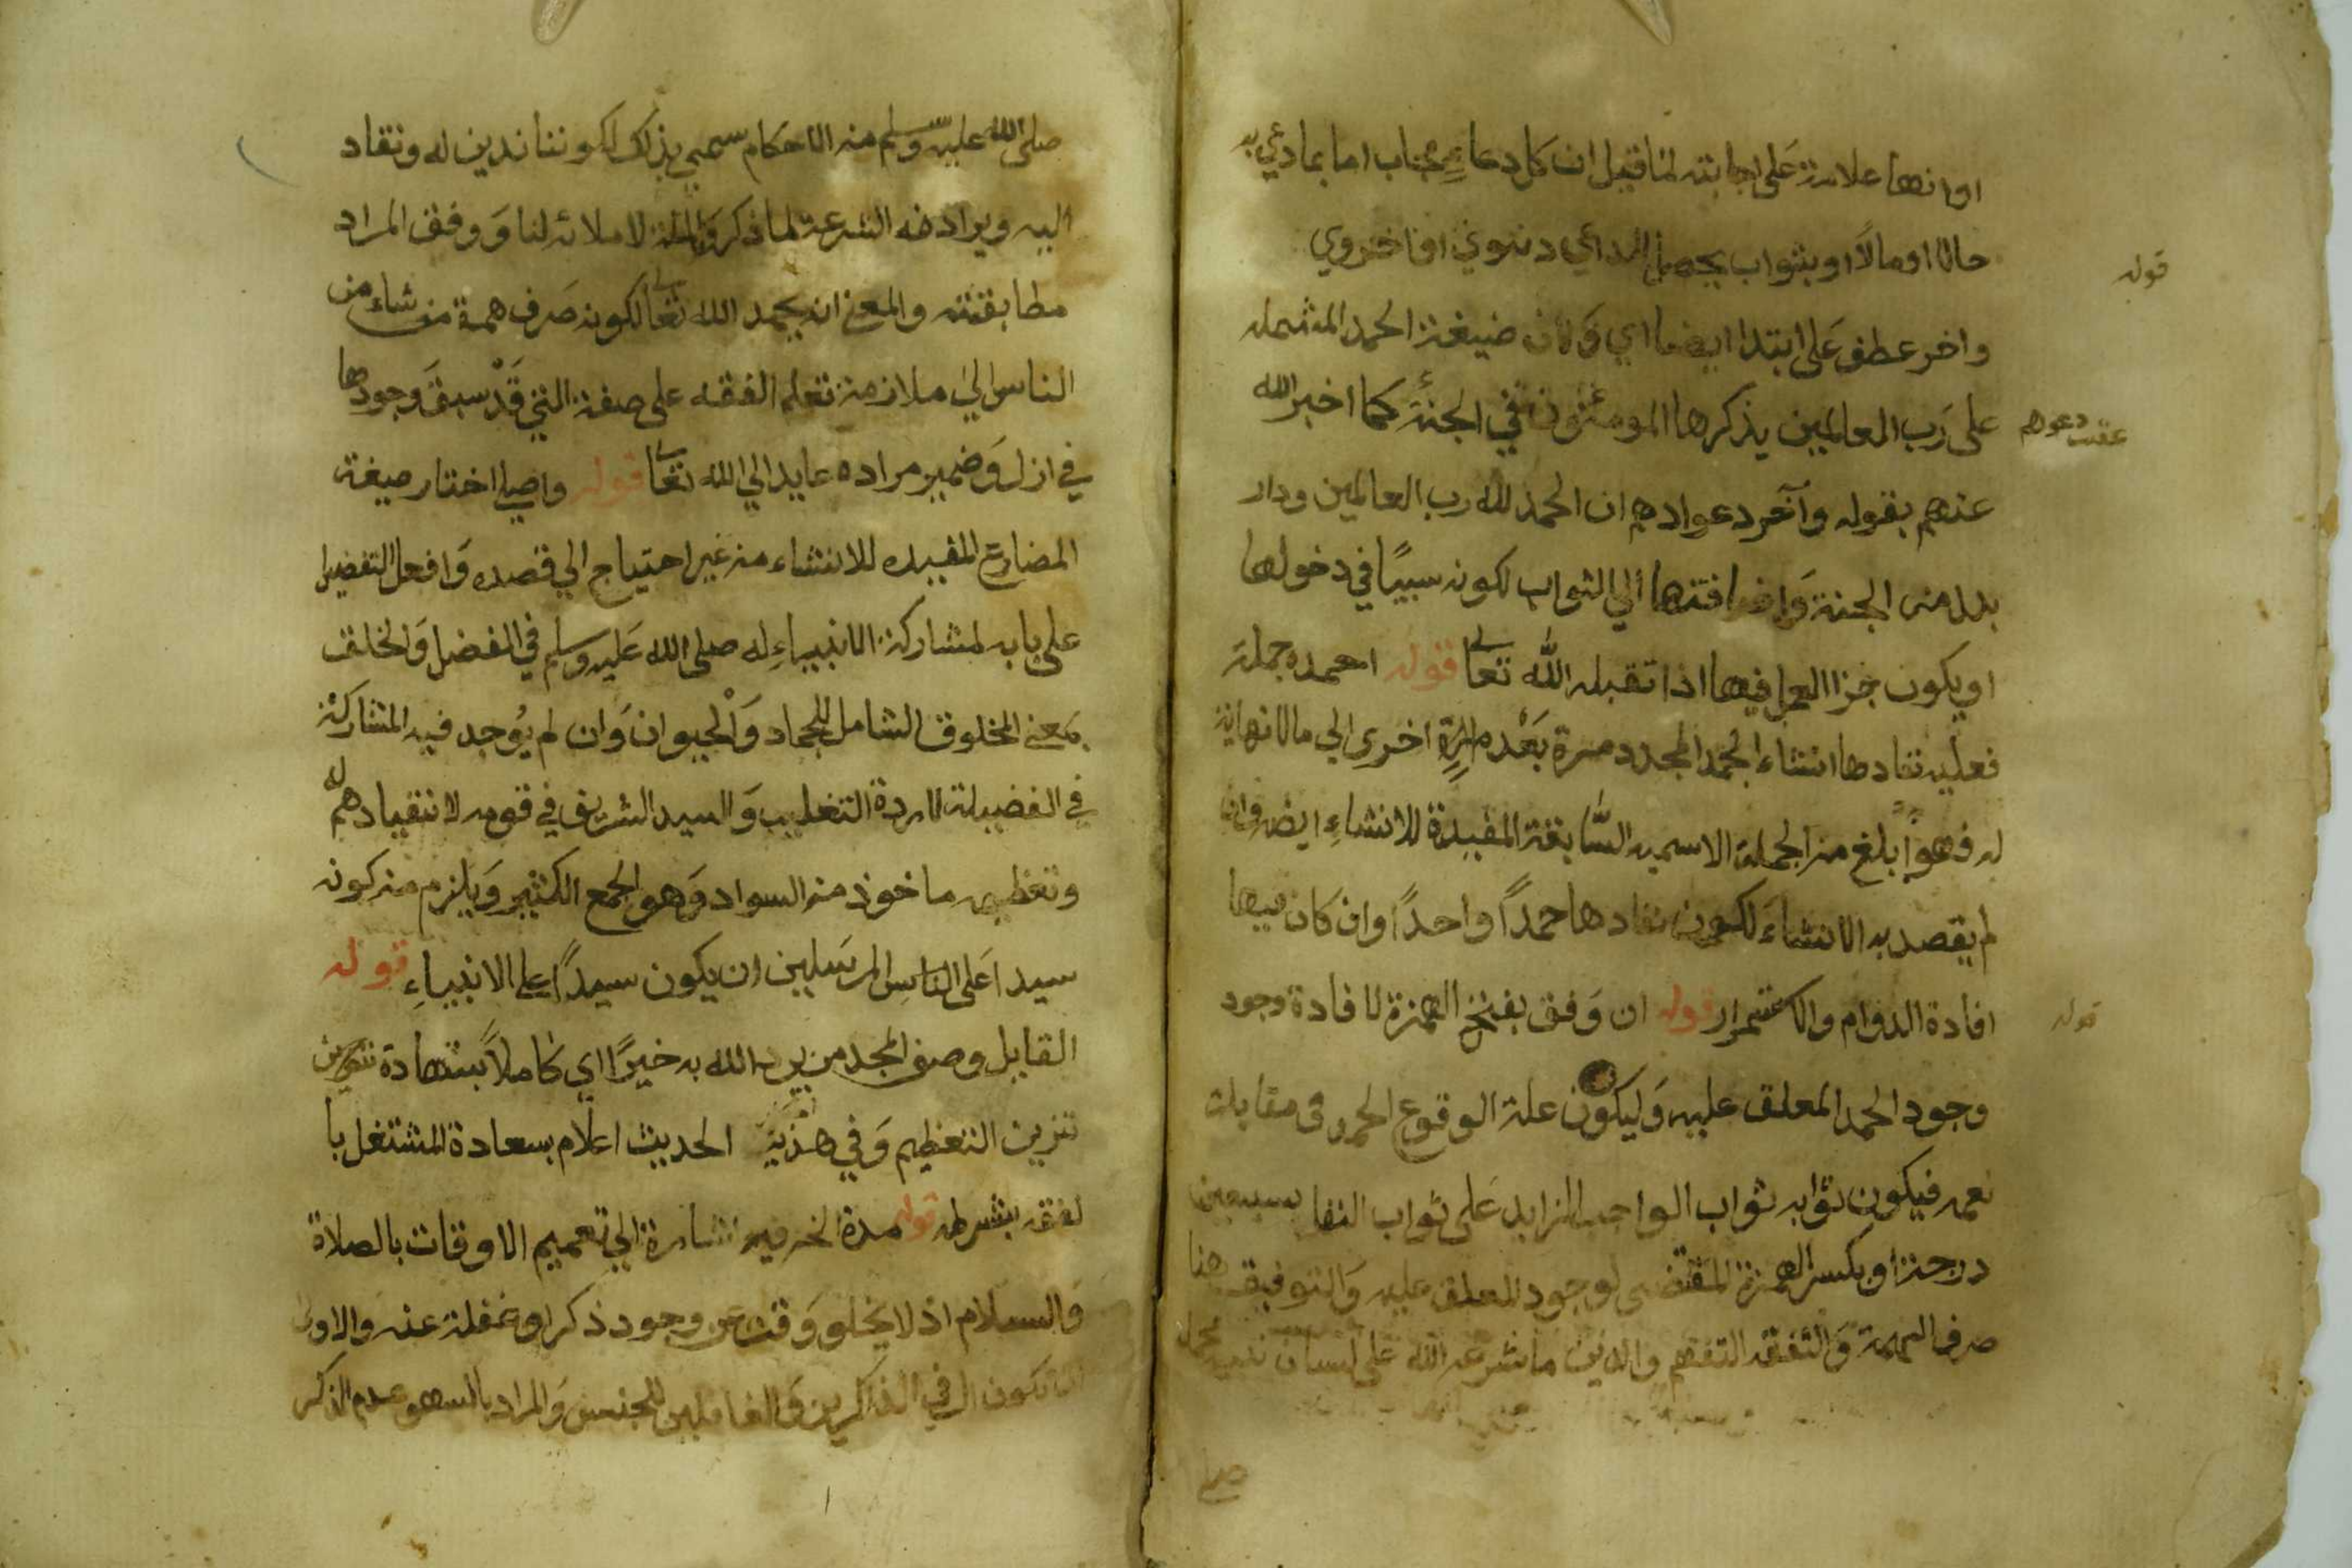 او انها علامة على اجابته لما قيل ان كل دعاءٍ مجاب اما بما دعي به
حالا او مالاً او بثواب يحصل للداعي دنيوي او اخروي
قوله
واخر عطف على ابتدا ايضا اي وَلان صيغة الحمد المشتمله
على رَب العالمين يذكرها المومنون في الجنة كما اخبر الله
عقب دعوهم
عنهم بقوله وآخر دعواهم ان الحمد لله رب العالمين ودار
بدل من الجنة وَاضافتها الي الثواب لكونه سببًا في دخولها
او يكون جزا العمل فيها اذا تقبله الله تعالى قوله احمده جملة
فعليه تفادها انشاء الحمد المجدد مرة بَعْد مرةٍ اخرى الي مالا نهاية
له فهو أبلغ من الجملة الاسميه السَّابقة المفيدة للانشاءِ ايضا وان
لم يقصد به الانشاءَ لكون مفادها حمداً واحداً وان كان فيها
افادة الدوام والاستمرار قوله ان وَفق بفتح الهمزة لافادة وجود
قوله
وجود الحمد المعلق عليه وَليكون علة الوقوع الحمد في مقابلة
نعمه فيكون ثوابه ثواب الواجب الزايد عَلى ثواب النفل بسبعين
درجة او بكسر الهمزة المقتضى لوجود المعلق عليه وَالتوفيق هنا
صرف الهمة وَالتفقه التفهم والدين ما شرعه الله على لسان نبيه محمد
صلى
صلى الله عليه وسلم من الاحكام سمي بذلك لكوننا ندين له وننقاد
اليه ويرادفه الشرعة لما ذكر وَالملة لاملائه لنا وَوفق المراد
مطابقته والمعنى انه يحمد الله تعالى لكونه صَرف همة من شاء من
الناس الي ملازمة تعلم الفقه على صفة التي قَدْ سبقَ وجودها
في ازل وَضمير مراده عايد الي الله تعالى قوله واصلي اختار صيغة
المضارع المفيده للانشاء من غير احتياج الي قصده وَافعل التفضيل
على بابه لمشاركة الانبياءِ له صلى الله عَليه وسلم في الفضل وَالخلق
بمَعنى المخلوق الشامل للجماد وَالْحيوان وَان لم يُوجد فيه المشاركة
في الفضيلة لارادة التغليب وَالسيد الشريف في قومه لانقيادهم له
وتعظيمه ماخوذ من السواد وَهو الجمع الكثير وَيلزم من كونه
سيدا عَلى الناس المرسَلين ان يكون سيداً على الانبياءِ قوله
القايل وصف لمحمد من يرد الله به خيرًا اي كاملاً بشهادة تنوين
تنوين التعظيم وَفي هذا الحديث اعلام بسعادة المشتغل با
لفقه بشرطه قوله مدة الخ فيه اشارة الي تعميم الاوقات بالصلاة
وَالسلام اذ لا يخلو وَقت عن وجود ذكر او غفلة عنه والاولى
ان تكون ال في الذاكرين وَالغافلين للجنس وَالمراد بالسهو عدم الذكر